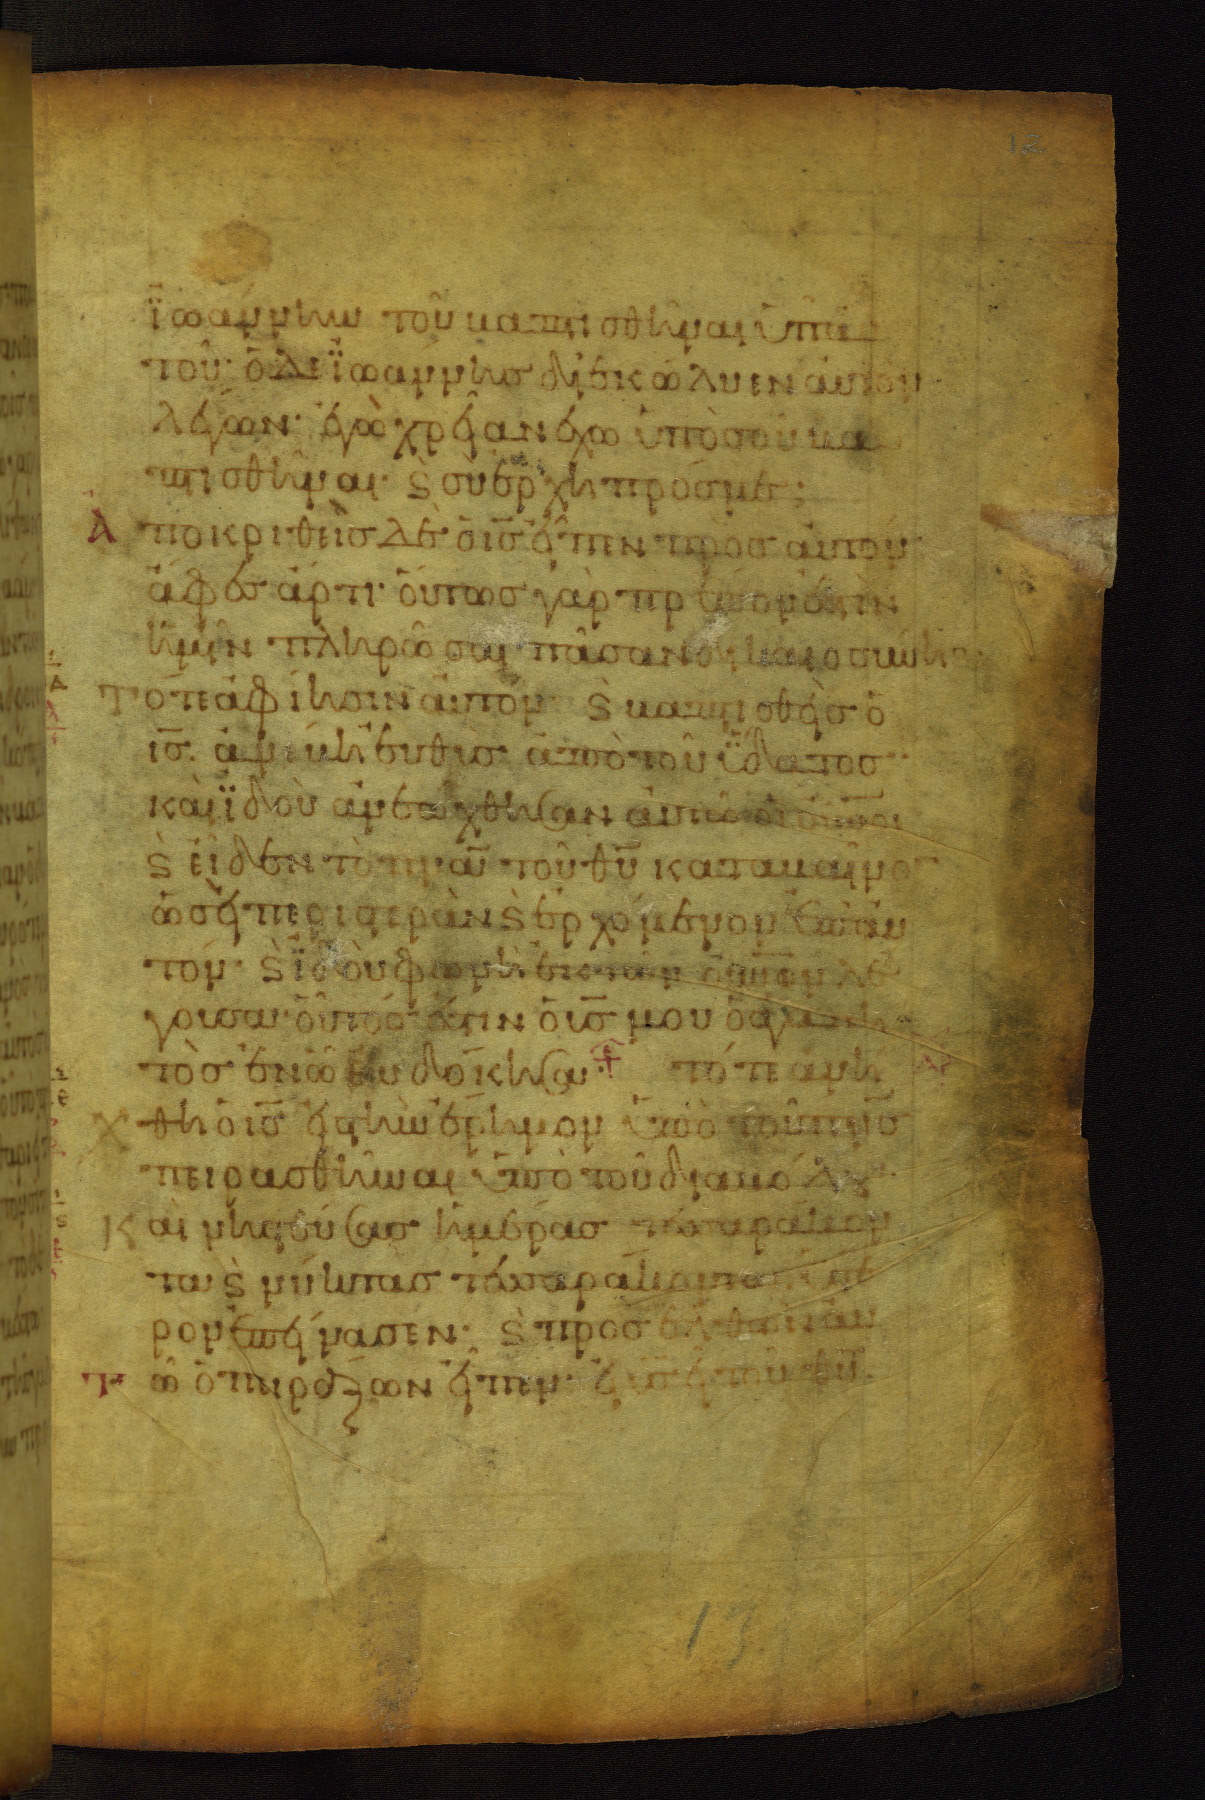 12
ϊωάννην τοῦ βαπτισθῆναι ὑπ' αὐ
τοῦ· ὁ δὲ ϊωάννης διεκώλυεν αὐτὸν
λέγων· ἐγὼ χρείαν ἔχω ὑπὸ σοῦ βα
πτισθῆναι· ϛ σὺ ἔρχη πρός με;
Ἀποκριθεὶς δὲ ὁ ις̅ εἶπεν πρὸς αὐτὸν
ἄφες ἄρτι· οὕτως γὰρ πρέπον ἐστὶν
ἡμῖν πληρῶσαι πᾶσαν δικαιοσύνην
Τότε ἀφίησιν αὐτόν· ϛ βαπτισθεὶς ὁ
ις̅· ἀνέβη εὐθὺς ἀπὸ τοῦ ὕδατος·
καὶ ϊδοὺ ἀνεώχθησαν αὐτῶ οἱ οὐνοι
ϛ εἶδεν τὸ πνα̅ τοῦ θυ̅ καταβαῖνον
ὡσεὶ περιστερὰν ϛ ἐρχόμενον ἐπ' αὐ
τόν· ϛ ϊδοὺ φωνὴ ἐκ τῶν οὐνων λέ
γουσα· οὗτός ἐστιν ὁ υς̅ μου ὁ ἀγαπη
τὸς ἐν ὧ εὐδόκησα· τότε ἀνή
χθη ὁ ις̅ εἰς τὴν ἔρημον ὑπὸ τοῦ πνς̅
πειρασθῆναι ὑπὸ τοῦ διαβόλου·
Καὶ νηστεύσας ἡμέρας τεσσαράκον
τα ϛ νύκτας τεσσαράκοντα ὕστε
ρον ἐπείνασεν· ϛ προσελθὼν αὐ
τῶ ὁ πειράζων εἶπεν· εἰ υς̅ εἶ τοῦ θυ̅
13